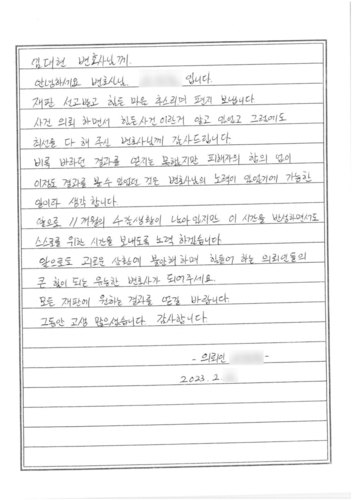 임대현 변호사님께.
안녕하세요 변호사님 입니다.
재판 선고받고 힘든 마음 추스리며 편지 보냅니다
사건 의뢰 하면서 힘든사건이란거 알고 있었고 그럼에도
최선을 다 해 주신 변호사님께 감사드립니다.
비록 바라던 결과를 얻지는 못했지만 피해자의 합의 없이
이정도 결과를 볼수 있었던 것은 변호사님의 노력이 있었기에 가능한
일이라 생각합니다
앞으로 11개월의 수감생활이 남아있지만 이 시간을 반성하면서도
스스로를 위한 시간을 보내도록 노력 하겠습니다
앞으로도 괴로운 상황에 불안해하며 힘들어 하는 의뢰인들의
큰 힘이 되는 유능한 변호사가 되어주세요.
모든 재판에 원하는 결과를 얻길 바랍니다
그동안 고생 많으셨습니다 감사합니다.
- 의뢰인 -
2023. 2